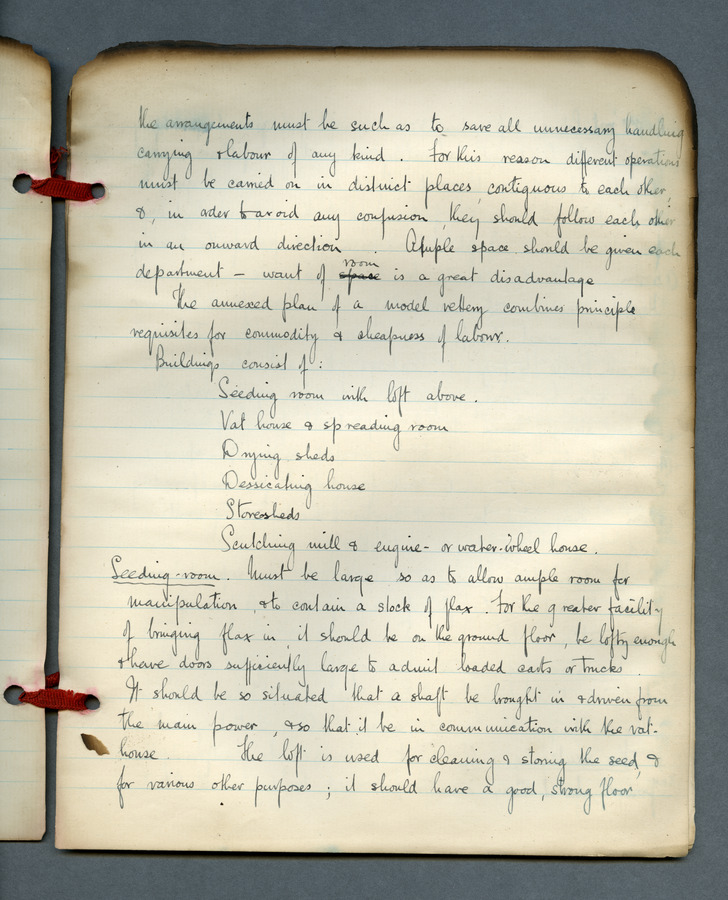 the arrangements must be such as to save all unnecessary handling
carrying & labour of any kind. For this reason different operations
must be carried on in district places contiguous to each other,
&, in order to avoid any confusion, they should follow each other
in an onward direction. Ample space should be given each
room
department – want of space is a great disadvantage
The annexed plan of a model rettery combines principle
requisites for commodity & cheapness of labour.
Buildings consist of:
Seeding room with loft above.
Vat house & spreading room
Drying sheds
Dessicating house
Storesheds
Scutching mill & engine- or water-wheel house.
Seeding-room. Must be large so as to allow ample room for
manipulation, & to contain a stock of flax. For the greater facility
of bringing flax in, it should be on the ground floor, be lofty enough
& have doors sufficiently large to admit loaded carts or trucks.
It should be so situated that a shaft be brought in & driven from
the main power, & so that it be in communication with the vat-
house. The loft is used for cleaning & storing the seed, &
for various other purposes; it should have a good, strong floor